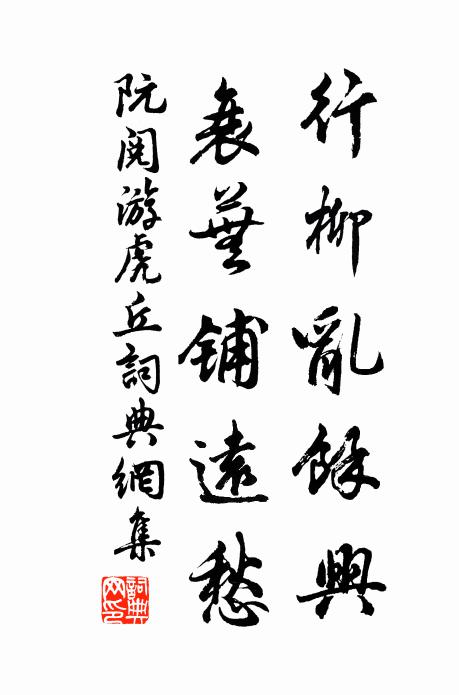 行柳亂餘興
衰蕪鋪遠愁
阮閱游虎丘詞典網集
詞典網印